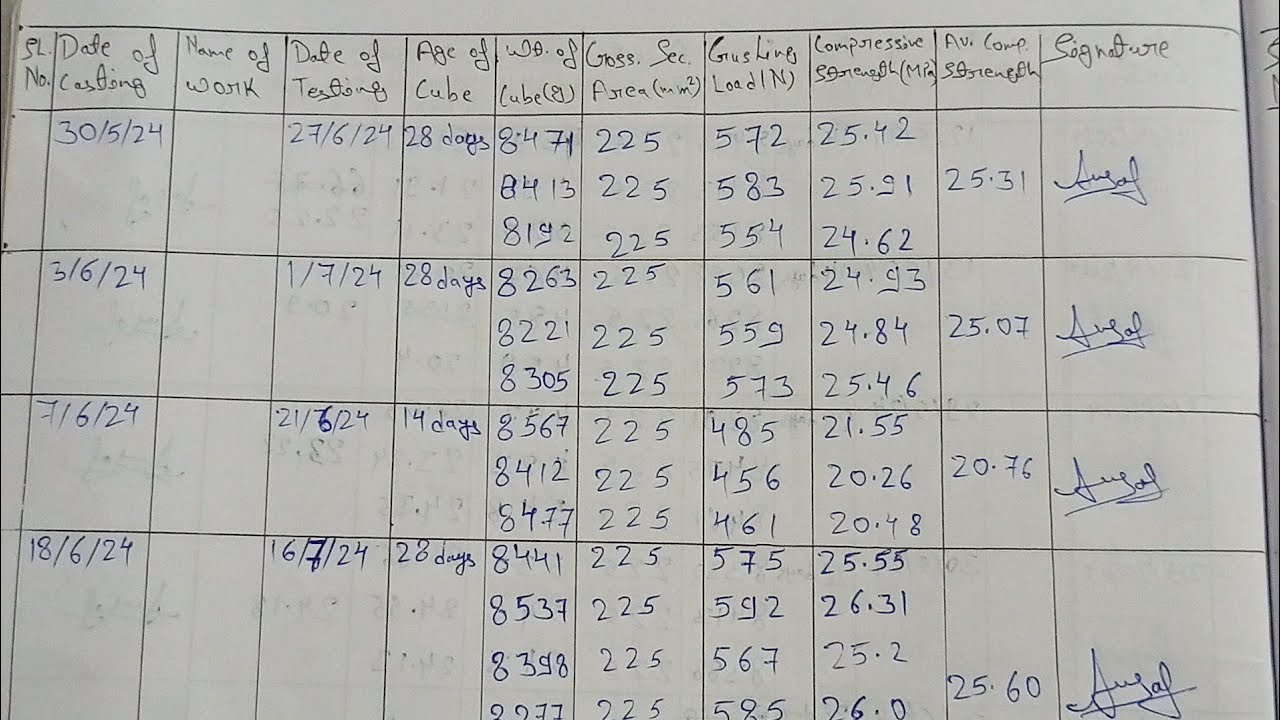 SL. No. Date of Casting Name of Work Date of Testing Age of Cube Wt. of Cube(g) Cross. Sec. Area(mm²) Crushing Load(N) Compressive Strength(MPa) Av. Comp. Strength Signature
30/5/24 27/6/24 28 days 8471 225 572 25.42
8413 225 583 25.91 25.31
8192 225 554 24.62
3/6/24 1/7/24 28 days 8263 225 561 24.93
8221 225 559 24.84 25.07
8305 225 573 25.46
7/6/24 21/6/24 14 days 8567 225 485 21.55
8412 225 456 20.26 20.76
8477 225 461 20.48
18/6/24 16/7/24 28 days 8441 225 575 25.55
8537 225 592 26.31
8398 225 567 25.2
225 585 26.0 25.60